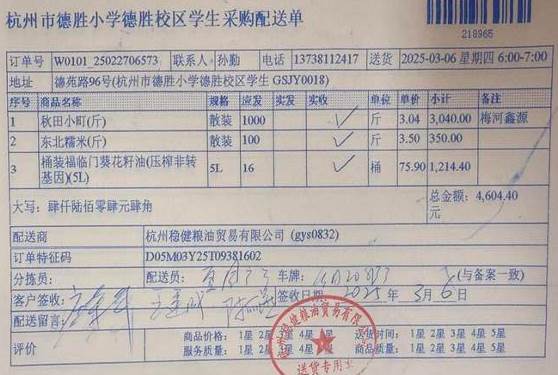 杭州市德胜小学德胜校区学生采购配送单
218965
订单号 W0101_25022706573 联系人 孙勤 电话 13738112417 送货 2025-03-06 星期四 6:00-7:00
地址 德苑路96号(杭州市德胜小学德胜校区学生 GSJY0018)
序号 商品名称 规格 应发 实发 实收 单位 单价 小计 备注
1 秋田小町(斤) 散装 1000 ✓ 斤 3.04 3,040.00 梅河鑫源
2 东北糯米(斤) 散装 100 ✓ 斤 3.50 350.00
3 桶装福临门葵花籽油(压榨非转基因)(5L) 5L 16 ✓ 桶 75.90 1,214.40
大写：肆仟陆佰零肆元肆角 总金额：4,604.40元
配送商 杭州稳健粮油贸易有限公司 (gys0832)
订单特征码 D05M03Y25T09381602
分拣员： 配送员： 车牌： (与备案一致)
客户签收： 签收日期 2025年 3月 6日
配送留言：
评价 商品价格： 1星 2星 3星 4星 5星 送货时间： 1星 2星 3星 4星 5星
服务质量： 1星 2星 3星 4星 5星 商品质量： 1星 2星 3星 4星 5星
稳健粮油贸易有限公司
送货专用章